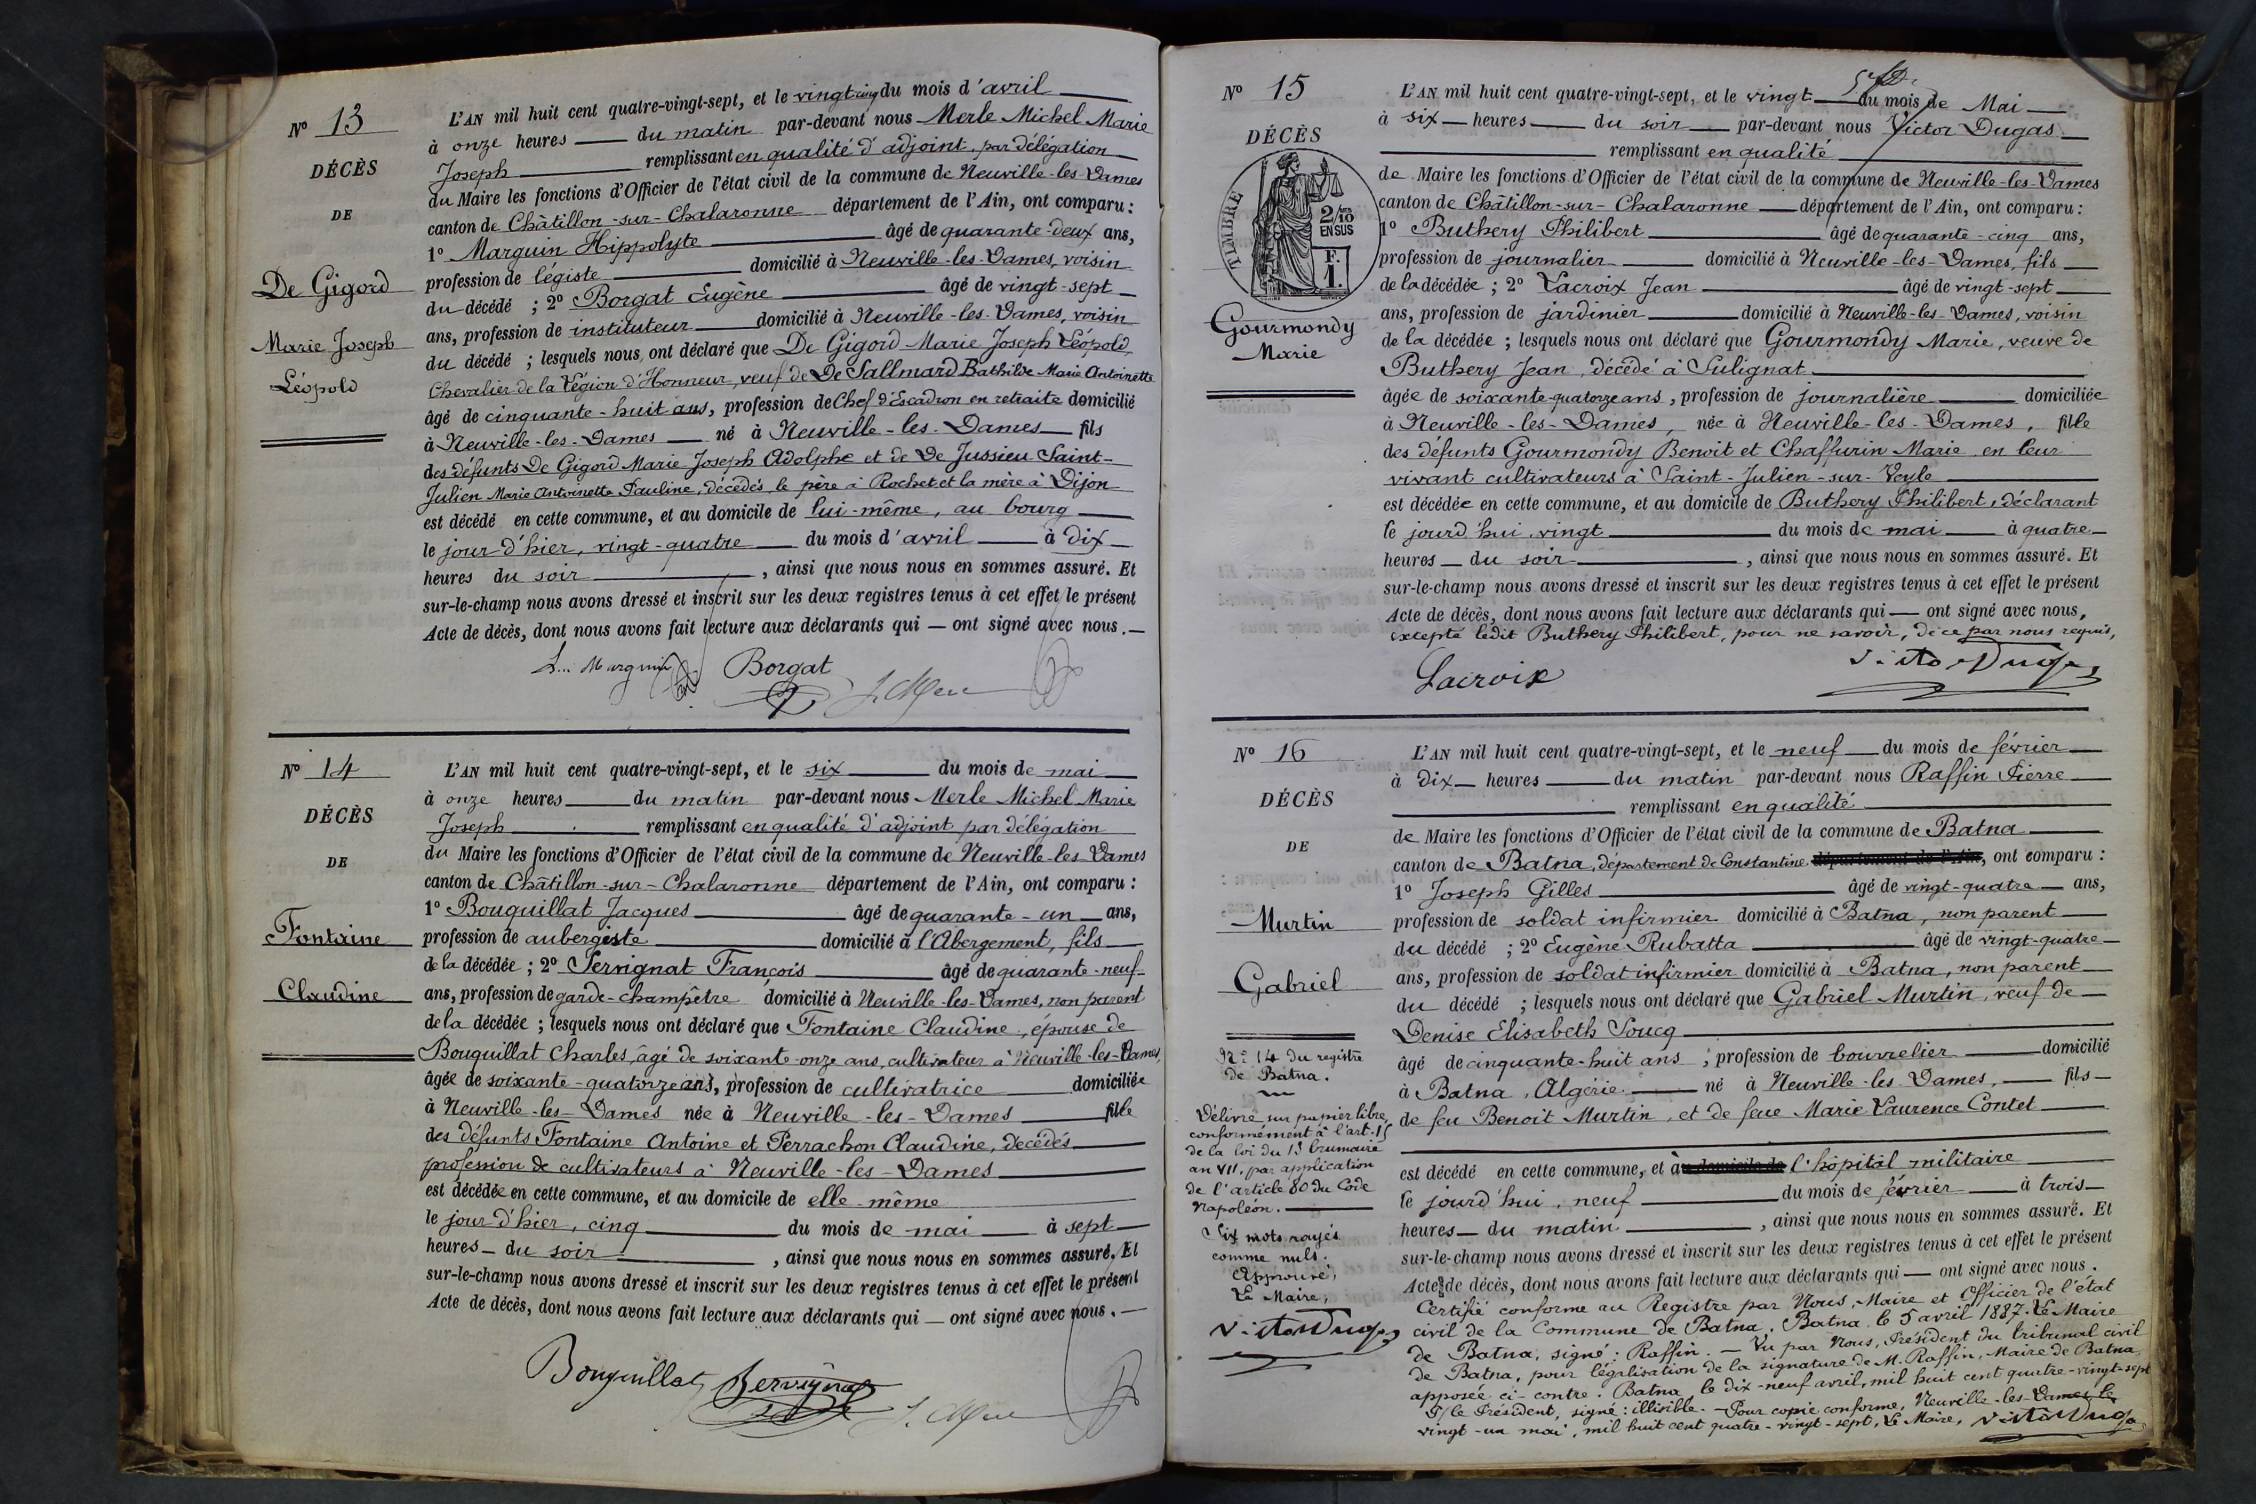 Nº 13
DÉCÈS
DE
De Gigord
Marie Joseph
Léopold
L'AN mil huit cent quatre-vingt-sept, et le vingt cinq du mois d'avril
à onze heures du matin par-devant nous Merle Michel Marie
Joseph remplissant en qualité d'adjoint, par délégation
du Maire les fonctions d'Officier de l'état civil de la commune de Neuville-les-Dames
canton de Châtillon-sur-Chalaronne département de l'Ain, ont comparu :
1º Marguin Hippolyte âgé de quarante-deux ans,
profession de légiste domicilié à Neuville-les-Dames, voisin
du décédé ; 2º Borgat Eugène âgé de vingt-sept
ans, profession de instituteur domicilié à Neuville-les-Dames, voisin
du décédé ; lesquels nous ont déclaré que De Gigord Marie Joseph Léopold,
Chevalier de la Légion d'Honneur, veuf de De Sallmard Bathilde Marie Antoinette
âgé de cinquante-huit ans, profession de Chef d'Escadron en retraite domicilié
à Neuville-les-Dames né à Neuville-les-Dames fils
des défunts De Gigord Marie Joseph Adolphe et de De Jussieu Saint-
Julien Marie Antoinette Pauline, décédés, le père à Rochet et la mère à Dijon
est décédé en cette commune, et au domicile de lui-même, au bourg
le jour d'hier, vingt-quatre du mois d'avril à dix
heures du soir , ainsi que nous nous en sommes assuré. Et
sur-le-champ nous avons dressé et inscrit sur les deux registres tenus à cet effet le présent
Acte de décès, dont nous avons fait lecture aux déclarants qui — ont signé avec nous. —
Marguin Borgat
Nº 14
DÉCÈS
DE
Fontaine
Claudine
L'AN mil huit cent quatre-vingt-sept, et le six du mois de mai
à onze heures du matin par-devant nous Merle Michel Marie
Joseph remplissant en qualité d'adjoint par délégation
du Maire les fonctions d'Officier de l'état civil de la commune de Neuville-les-Dames
canton de Châtillon-sur-Chalaronne département de l'Ain, ont comparu :
1º Bouquillat Jacques âgé de quarante-un ans,
profession de aubergiste domicilié à l'Abergement, fils
de la décédée ; 2º Pervignat François âgé de quarante-neuf
ans, profession de garde-champêtre domicilié à Neuville-les-Dames, non parent
de la décédée ; lesquels nous ont déclaré que Fontaine Claudine, épouse de
Bouquillat Charles, âgé de soixante-onze ans, cultivateur à Neuville-les-Dames,
âgée de soixante-quatorze ans, profession de cultivatrice domiciliée
à Neuville-les-Dames née à Neuville-les-Dames fille
des défunts Fontaine Antoine et Perrachon Claudine, décédés
profession de cultivateurs à Neuville-les-Dames
est décédée en cette commune, et au domicile de elle-même
le jour d'hier, cinq du mois de mai à sept
heures du soir , ainsi que nous nous en sommes assuré. Et
sur-le-champ nous avons dressé et inscrit sur les deux registres tenus à cet effet le présent
Acte de décès, dont nous avons fait lecture aux déclarants qui — ont signé avec nous. —
Bouquillat Pervignat
Nº 15
DÉCÈS
TIMBRE
2/10
EN SUS
F.
1.
Gourmondy
Marie
L'AN mil huit cent quatre-vingt-sept, et le vingt du mois de Mai
à six heures du soir par-devant nous Victor Dugas
remplissant en qualité
de Maire les fonctions d'Officier de l'état civil de la commune de Neuville-les-Dames
canton de Châtillon-sur-Chalaronne département de l'Ain, ont comparu :
1º Buthery Philibert âgé de quarante-cinq ans,
profession de journalier domicilié à Neuville-les-Dames, fils
de la décédée ; 2º Lacroix Jean âgé de vingt-sept
ans, profession de jardinier domicilié à Neuville-les-Dames, voisin
de la décédée ; lesquels nous ont déclaré que Gourmondy Marie, veuve de
Buthery Jean, décédé à Sulignat
âgée de soixante-quatorze ans, profession de journalière domiciliée
à Neuville-les-Dames, née à Neuville-les-Dames, fille
des défunts Gourmondy Benoit et Chaffurin Marie en leur
vivant cultivateurs à Saint-Julien-sur-Veyle
est décédée en cette commune, et au domicile de Buthery Philibert, déclarant
le jourd'hui, vingt du mois de mai à quatre
heures du soir , ainsi que nous nous en sommes assuré. Et
sur-le-champ nous avons dressé et inscrit sur les deux registres tenus à cet effet le présent
Acte de décès, dont nous avons fait lecture aux déclarants qui — ont signé avec nous,
excepté ledit Buthery Philibert, pour ne savoir, de ce par nous requis,
Lacroix Victor Dugas
Nº 16
DÉCÈS
DE
Murtin
Gabriel
Nº 14 du registre
de Batna.
Délivré sur papier libre
conformément à l'art. 15
de la loi du 13 brumaire
an VII, par application
de l'article 80 du Code
Napoléon.
Six mots rayés
comme nuls.
Approuvé,
Le Maire,
Victor Dugas
L'AN mil huit cent quatre-vingt-sept, et le neuf du mois de février
à dix heures du matin par-devant nous Raffin Pierre
remplissant en qualité
de Maire les fonctions d'Officier de l'état civil de la commune de Batna
canton de Batna, département de Constantine département de l'Ain, ont comparu :
1º Joseph Gilles âgé de vingt-quatre ans,
profession de soldat infirmier domicilié à Batna, non parent
du décédé ; 2º Eugène Rubatta âgé de vingt-quatre
ans, profession de soldat infirmier domicilié à Batna, non parent
du décédé ; lesquels nous ont déclaré que Gabriel Murtin, veuf de
Denise Elisabeth Soucq
âgé de cinquante-huit ans ; profession de bourrelier domicilié
à Batna, Algérie. né à Neuville-les-Dames, fils
de feu Benoit Murtin, et de feue Marie Laurence Contet
est décédé en cette commune, et au domicile de l'hôpital militaire
le jourd'hui, neuf du mois de février à trois
heures du matin , ainsi que nous nous en sommes assuré. Et
sur-le-champ nous avons dressé et inscrit sur les deux registres tenus à cet effet le présent
Acte de décès, dont nous avons fait lecture aux déclarants qui — ont signé avec nous.
Certifié conforme au Registre par Nous, Maire et Officier de l'état
civil de la Commune de Batna. Batna le 5 avril 1887. Le Maire
de Batna, signé : Raffin. — Vu par Nous, Président du tribunal civil
de Batna, pour légalisation de la signature de M. Raffin, Maire de Batna,
apposée ci-contre. Batna, le dix-neuf avril, mil huit cent quatre-vingt-sept
P/ le Président, signé : illisible. — Pour copie conforme, Neuville-les-Dames, le
vingt-un mai, mil huit cent quatre-vingt-sept, Le Maire, Victor Dugas